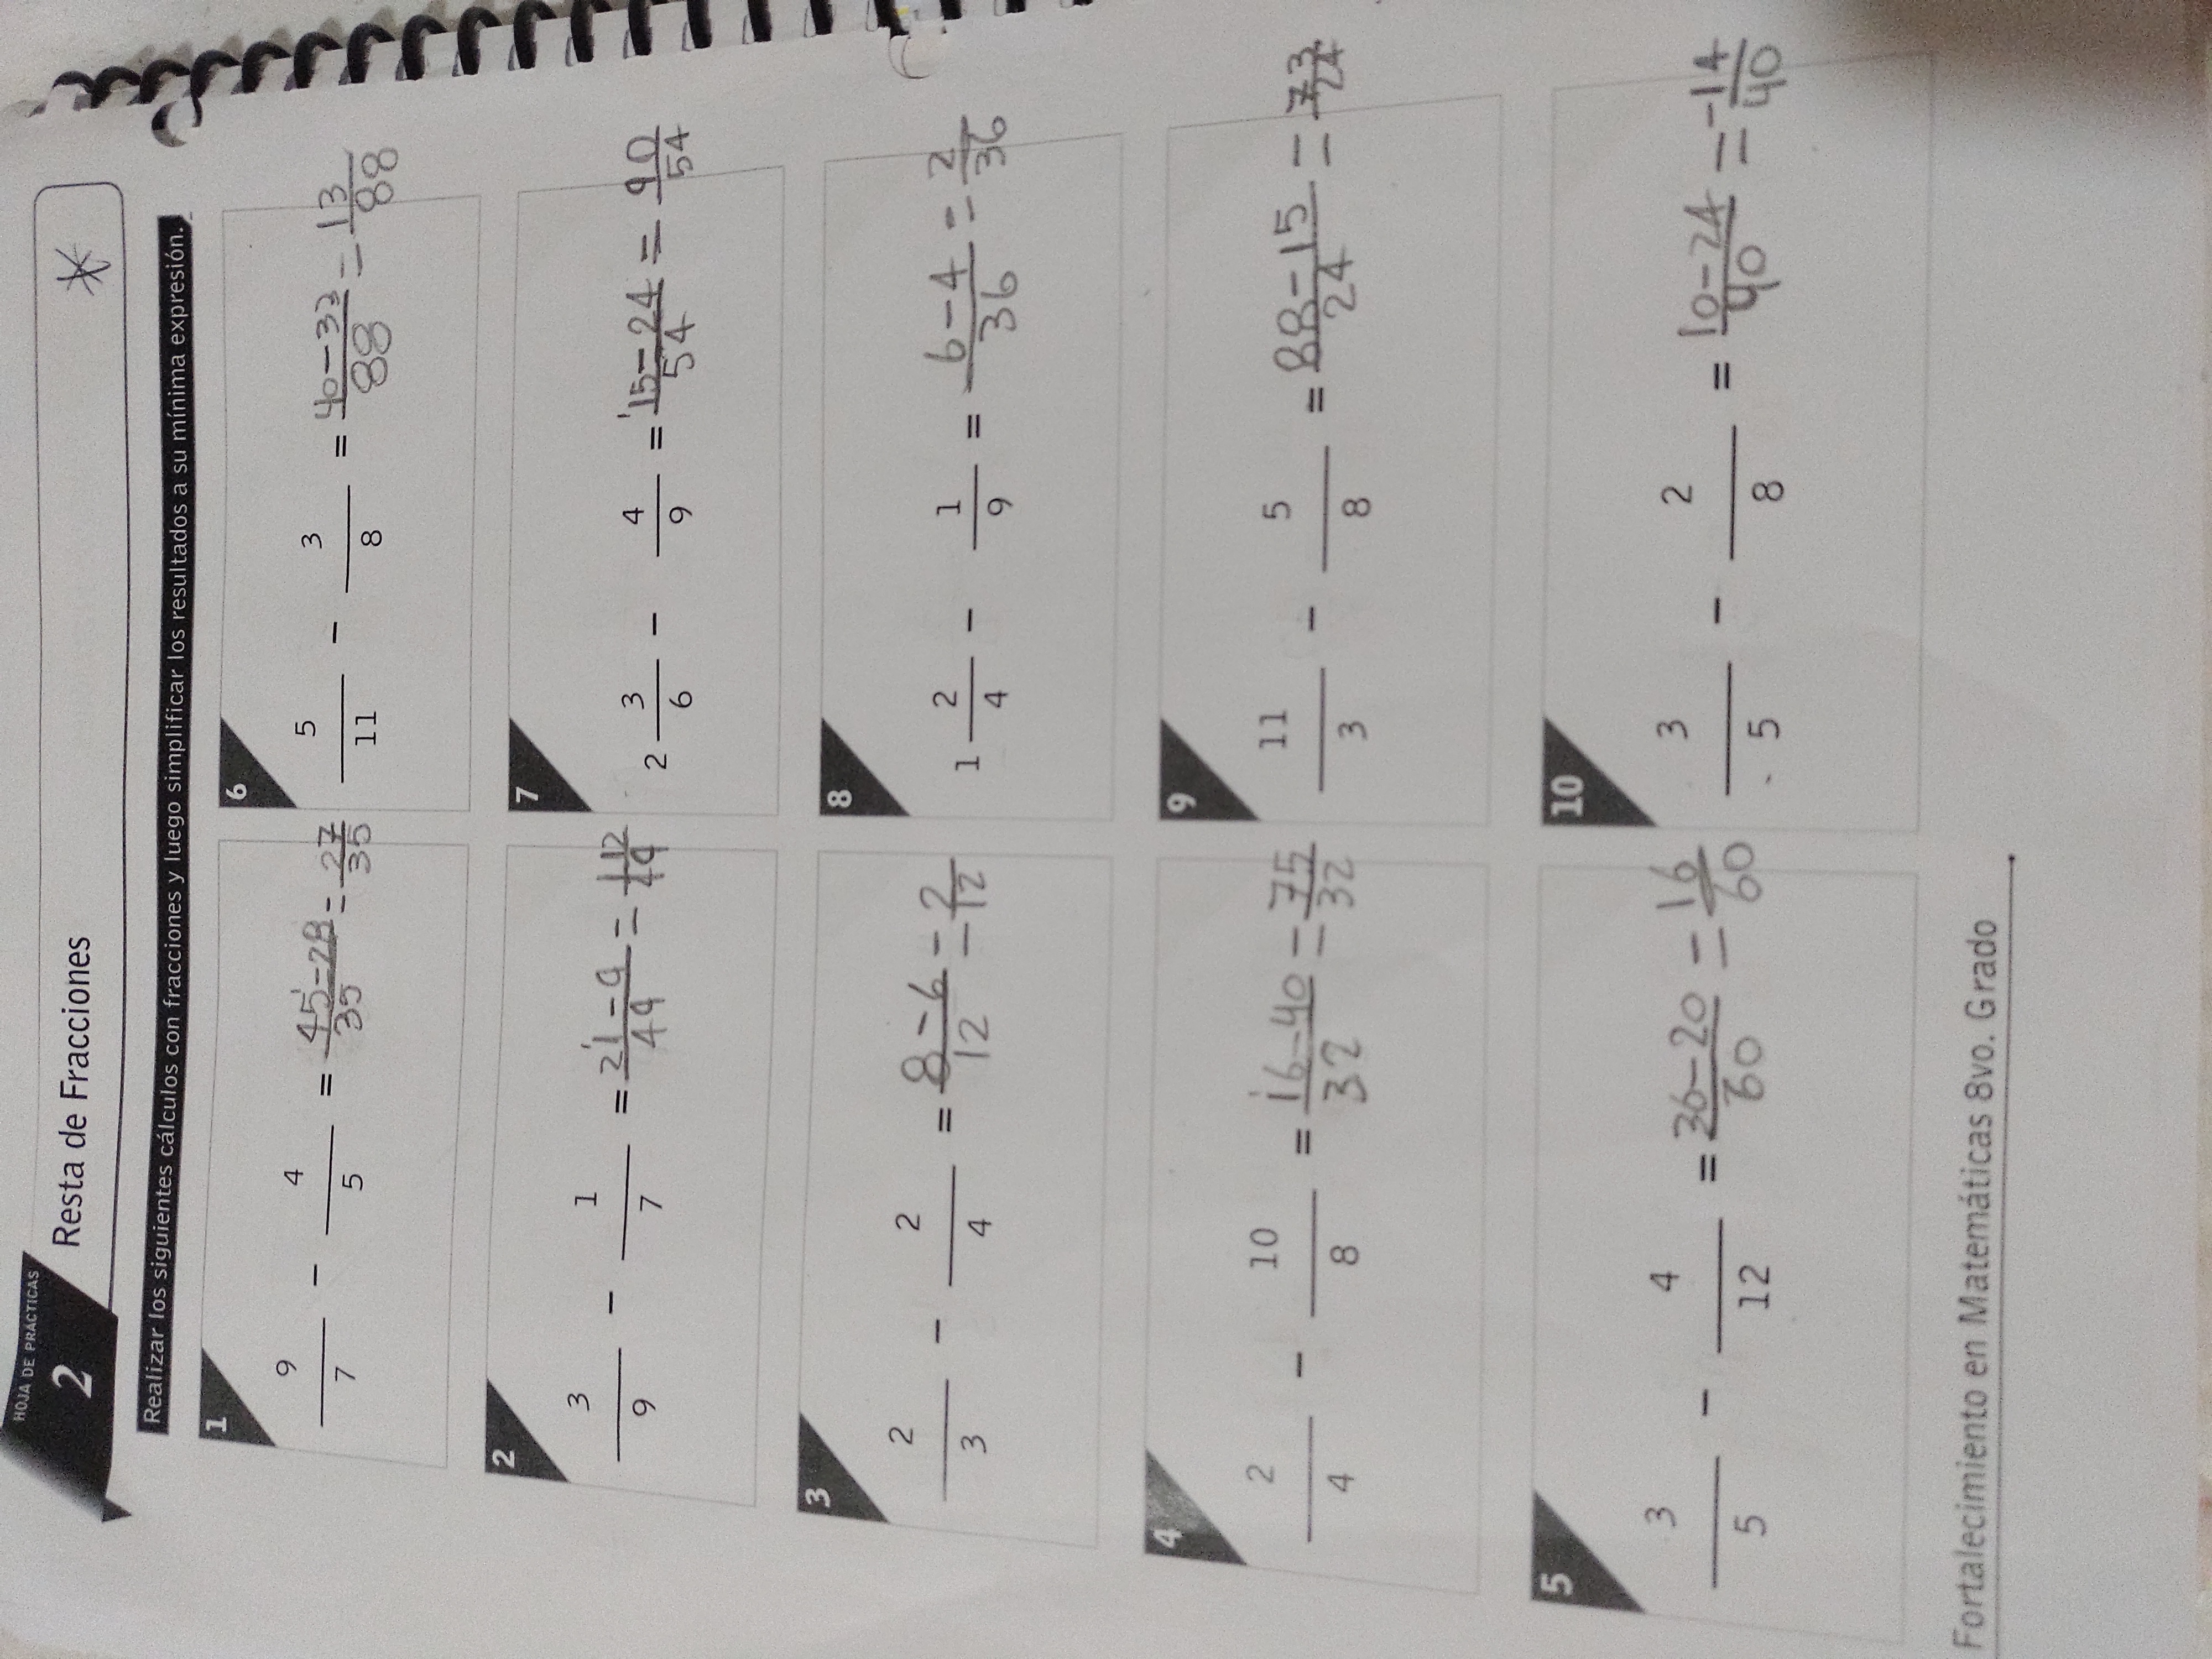 HOJA DE PRÁCTICAS
2
Resta de Fracciones
*
Realizar los siguientes cálculos con fracciones y luego simplificar los resultados a su mínima expresión.
1
9/7 - 4/5 = 45-28/35 = 27/35
2
3/9 - 1/7 = 21-9/49 = 112/49
3
2/3 - 2/4 = 8-6/12 = 2/12
4
2/4 - 10/8 = 16-40/32 = 75/32
5
3/5 - 4/12 = 36-20/60 = 16/60
6
5/11 - 3/8 = 40-33/88 = 13/88
7
2 3/6 - 4/9 = 15-24/54 = 90/54
8
1 2/4 - 1/9 = 6-4/36 = 2/36
9
11/3 - 5/8 = 88-15/24 = 73/24
10
3/5 - 2/8 = 10-24/40 = -14/40
Fortalecimiento en Matemáticas 8vo. Grado